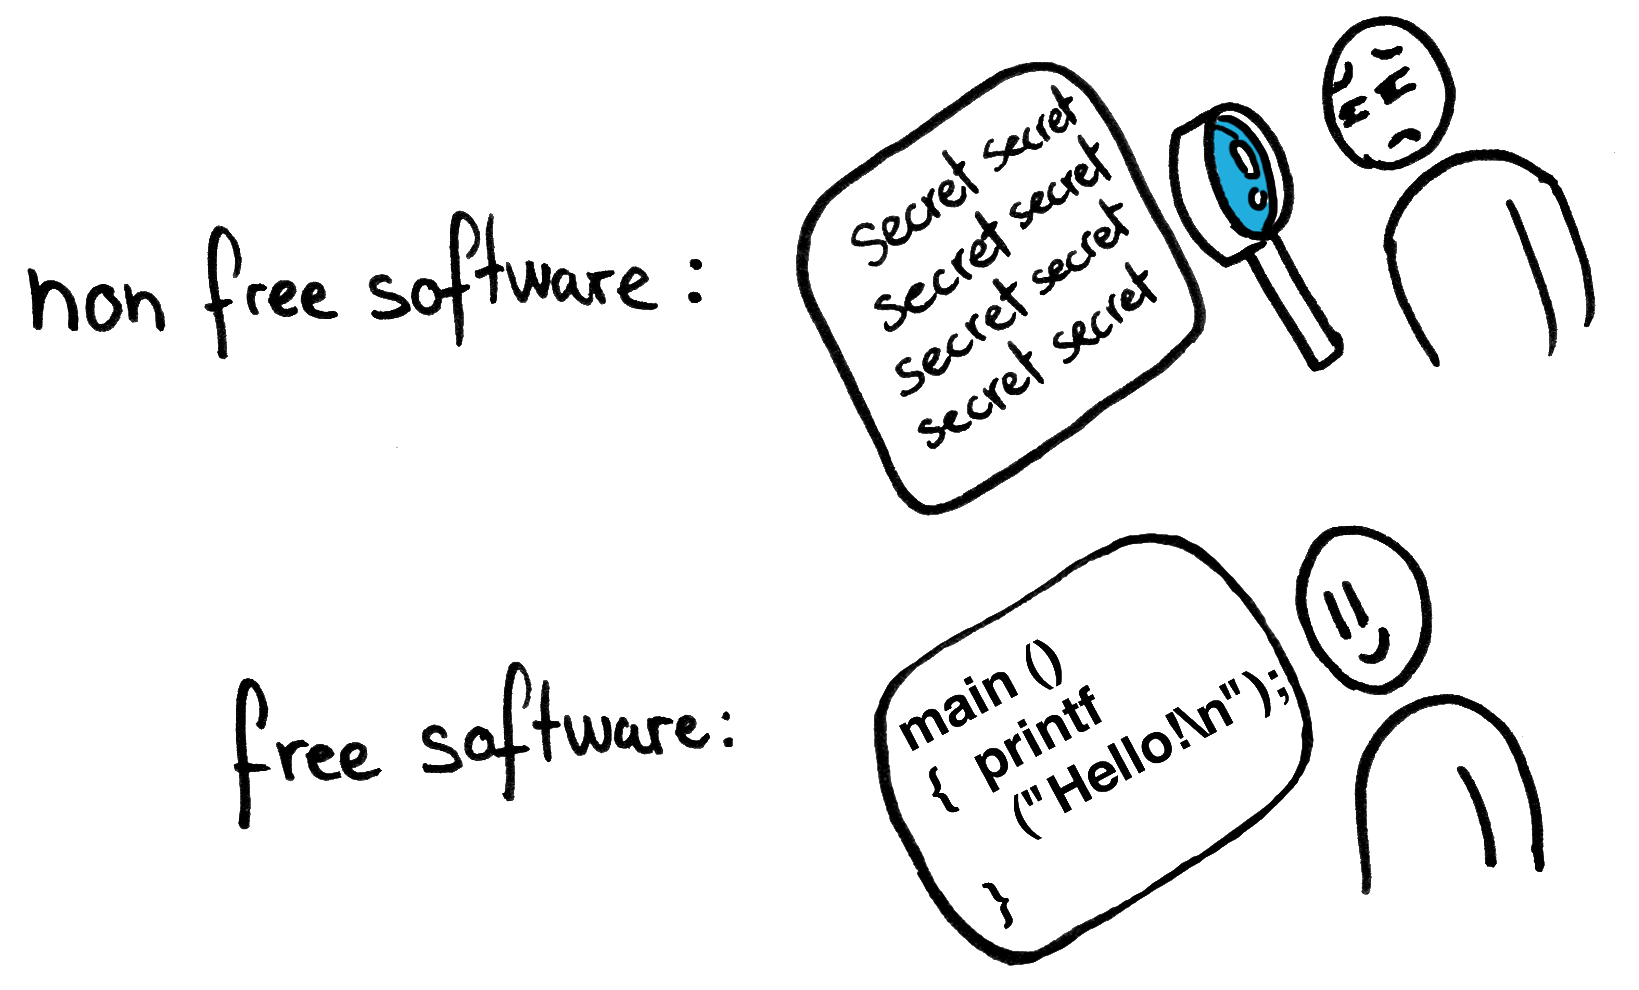 non free software:
Secret secret
secret secret
secret secret
secret secret
free software:
main ()
{ printf
("Hello!\n");
}